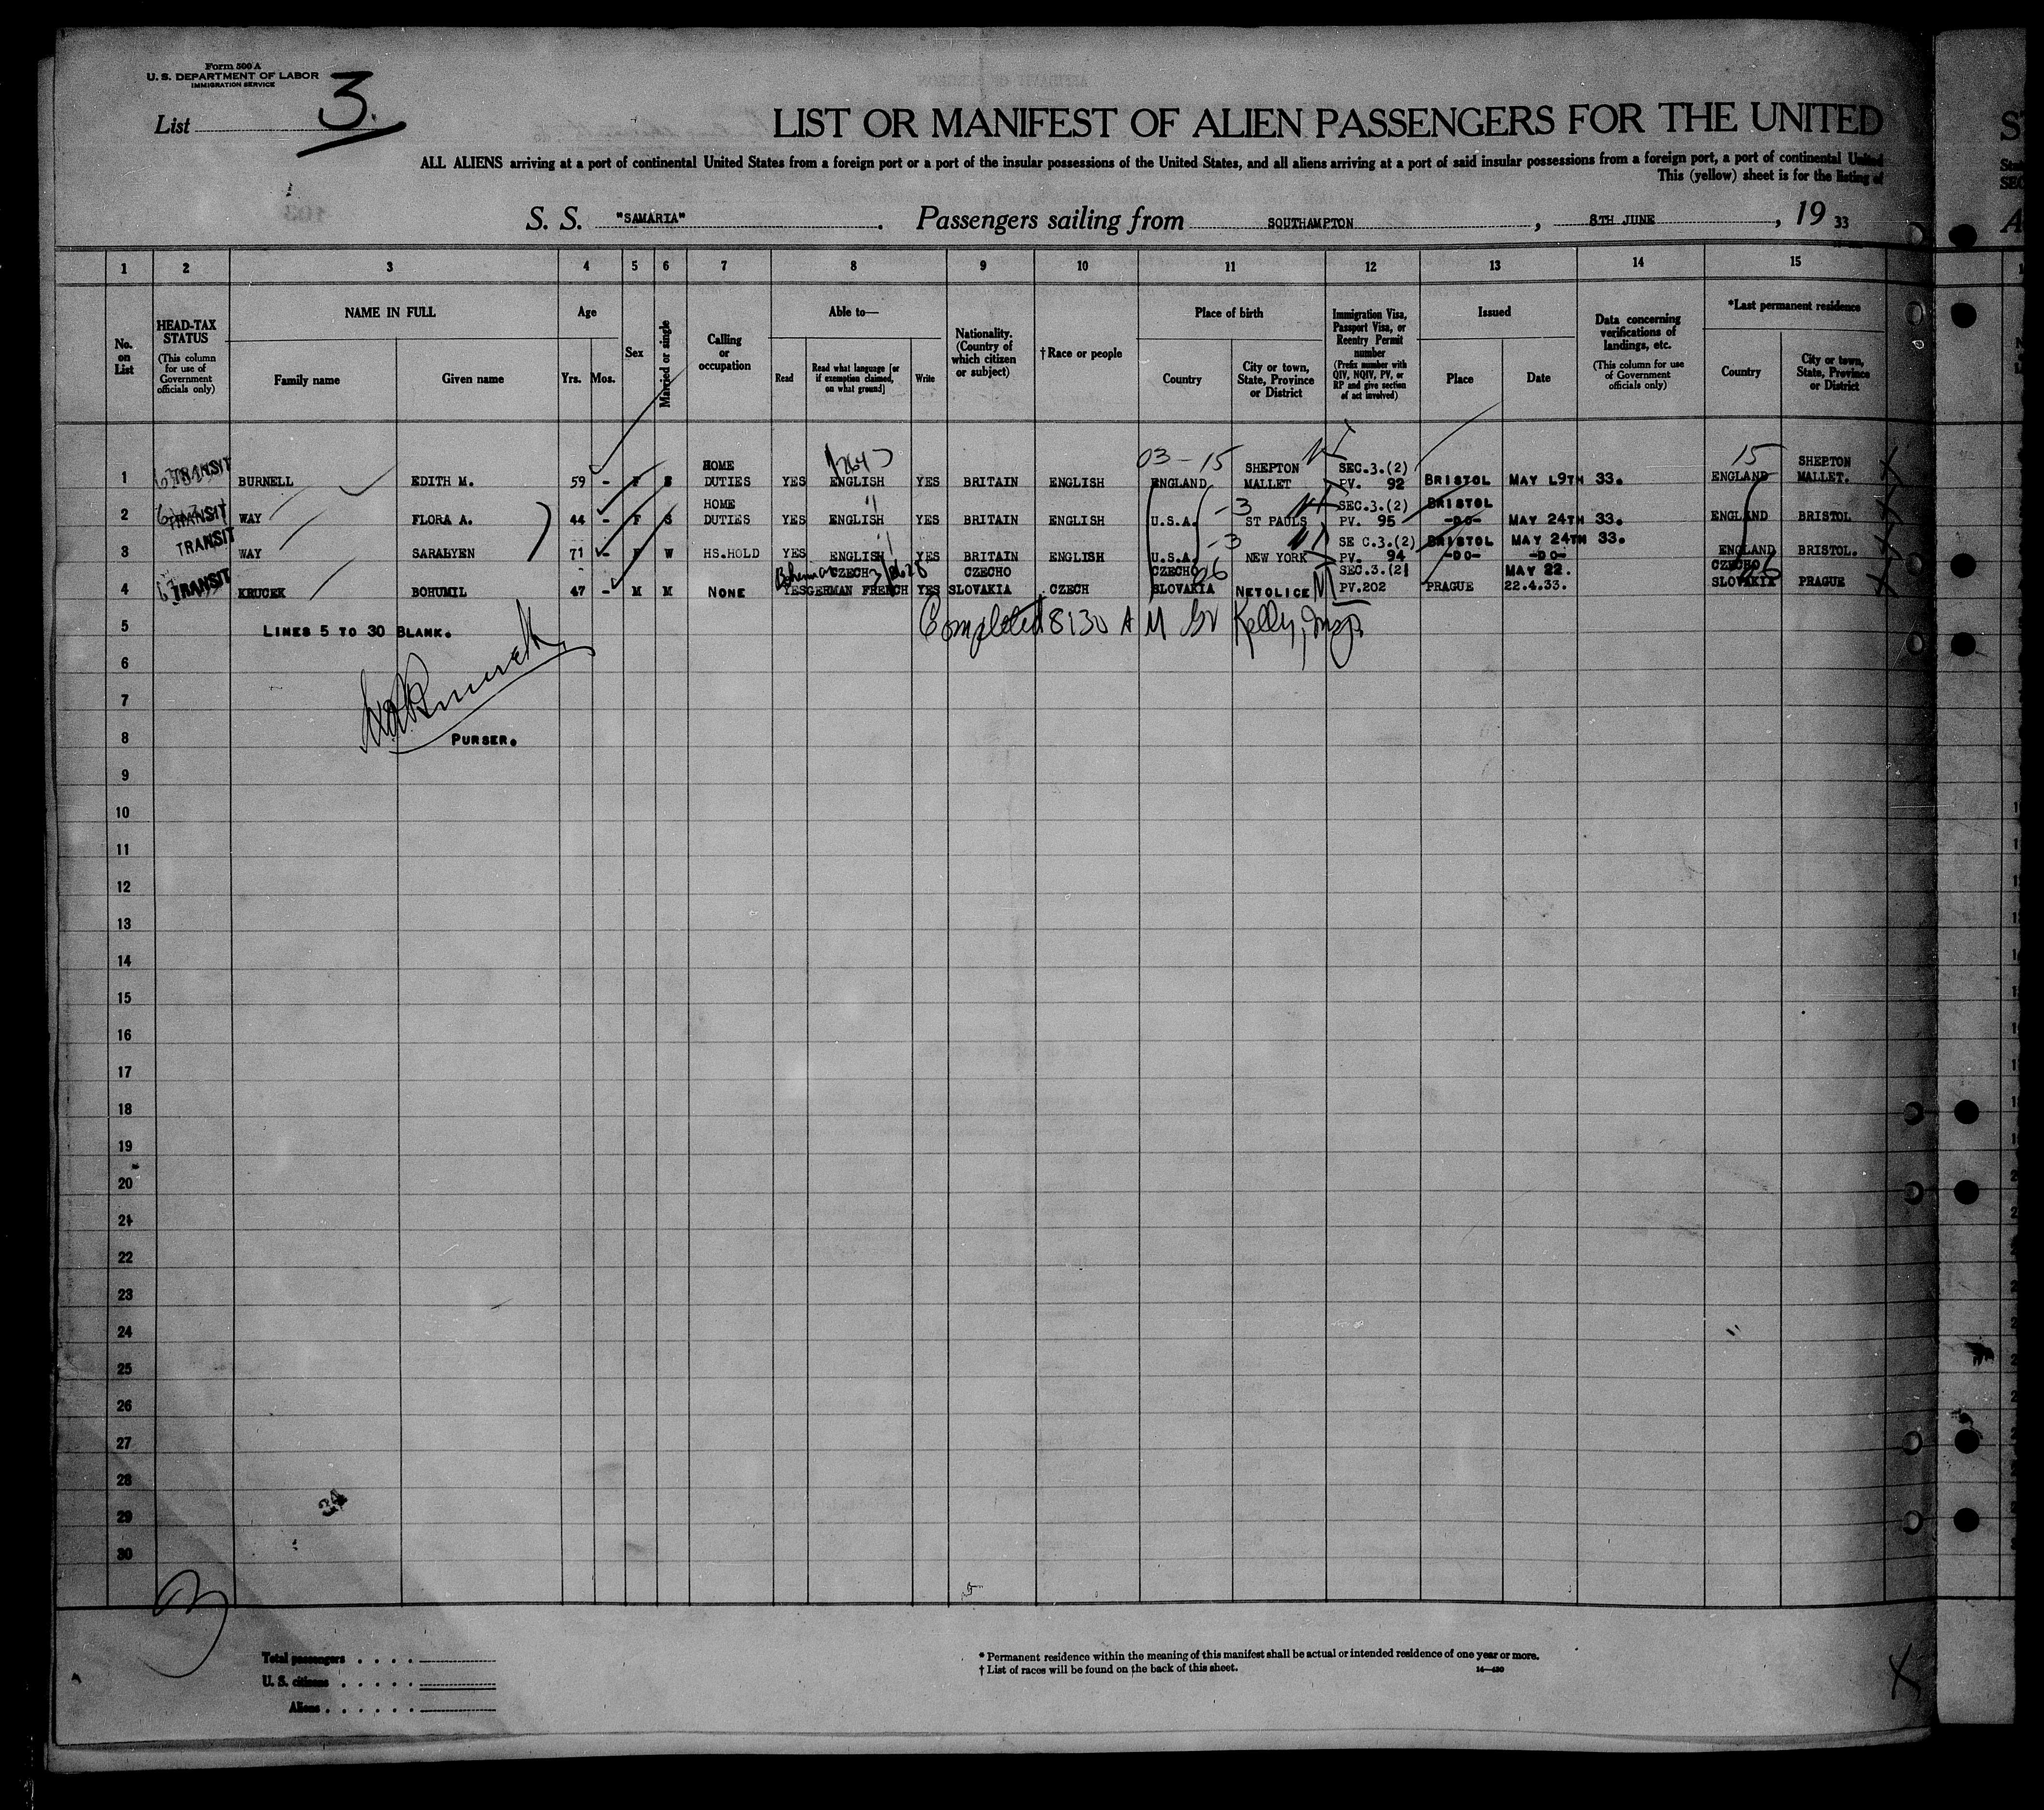 Form 500 A
U. S. DEPARTMENT OF LABOR
IMMIGRATION SERVICE
List 3.
LIST OR MANIFEST OF ALIEN PASSENGERS FOR THE UNITED
ALL ALIENS arriving at a port of continental United States from a foreign port or a port of the insular possessions of the United States, and all aliens arriving at a port of said insular possessions from a foreign port, a port of continental United
This (yellow) sheet is for the listing of
S. S. "SAMARIA". Passengers sailing from SOUTHAMPTON, 8TH JUNE, 19 33
1 2 3 4 5 6 7 8 9 10 11 12 13 14 15
No. on List
HEAD-TAX STATUS (This column for use of Government officials only)
NAME IN FULL
Family name
Given name
Age
Yrs. Mos.
Sex
Married or single
Calling or occupation
Able to—
Read
Read what language [or if exemption claimed, on what ground]
Write
Nationality. (Country of which citizen or subject)
†Race or people
Place of birth
Country
City or town, State, Province or District
Immigration Visa, Passport Visa, or Reentry Permit number (Prefix number with QIV, NQIV, PV, or RP and give section of act involved)
Issued
Place
Date
Data concerning verifications of landings, etc. (This column for use of Government officials only)
*Last permanent residence
Country
City or town, State, Province or District
1 TRANSIT BURNELL EDITH M. 59 - F S HOME DUTIES YES ENGLISH YES BRITAIN ENGLISH 03-15 ENGLAND SHEPTON MALLET SEC.3.(2) PV. 92 BRISTOL MAY L9TH 33. 15 ENGLAND SHEPTON MALLET.
2 TRANSIT WAY FLORA A. 44 - F S HOME DUTIES YES ENGLISH YES BRITAIN ENGLISH U.S.A. -3 ST PAULS SEC.3.(2) PV. 95 BRISTOL -DO- MAY 24TH 33. ENGLAND BRISTOL
3 TRANSIT WAY SARALYEN 71 - F W HS.HOLD YES ENGLISH YES BRITAIN ENGLISH U.S.A. -3 NEW YORK SE C.3.(2) PV. 94 BRISTOL -DO- MAY 24TH 33. -DO- ENGLAND BRISTOL.
4 TRANSIT KRUCEK BOHUMIL 47 - M M NONE YES CZECH GERMAN FRENCH YES CZECHO SLOVAKIA CZECH CZECHO SLOVAKIA NETOLICE SEC.3.(2) PV.202 PRAGUE MAY 22. 22.4.33. CZECHO SLOVAKIA PRAGUE
5 LINES 5 TO 30 BLANK. Completed 8:30 A M Kelly, Insp.
6
7
8 PURSER.
9
10
11
12
13
14
15
16
17
18
19
20
21
22
23
24
25
26
27
28
29
30
34
Total passengers
U. S. citizens
Aliens
* Permanent residence within the meaning of this manifest shall be actual or intended residence of one year or more.
† List of races will be found on the back of this sheet.
14—430